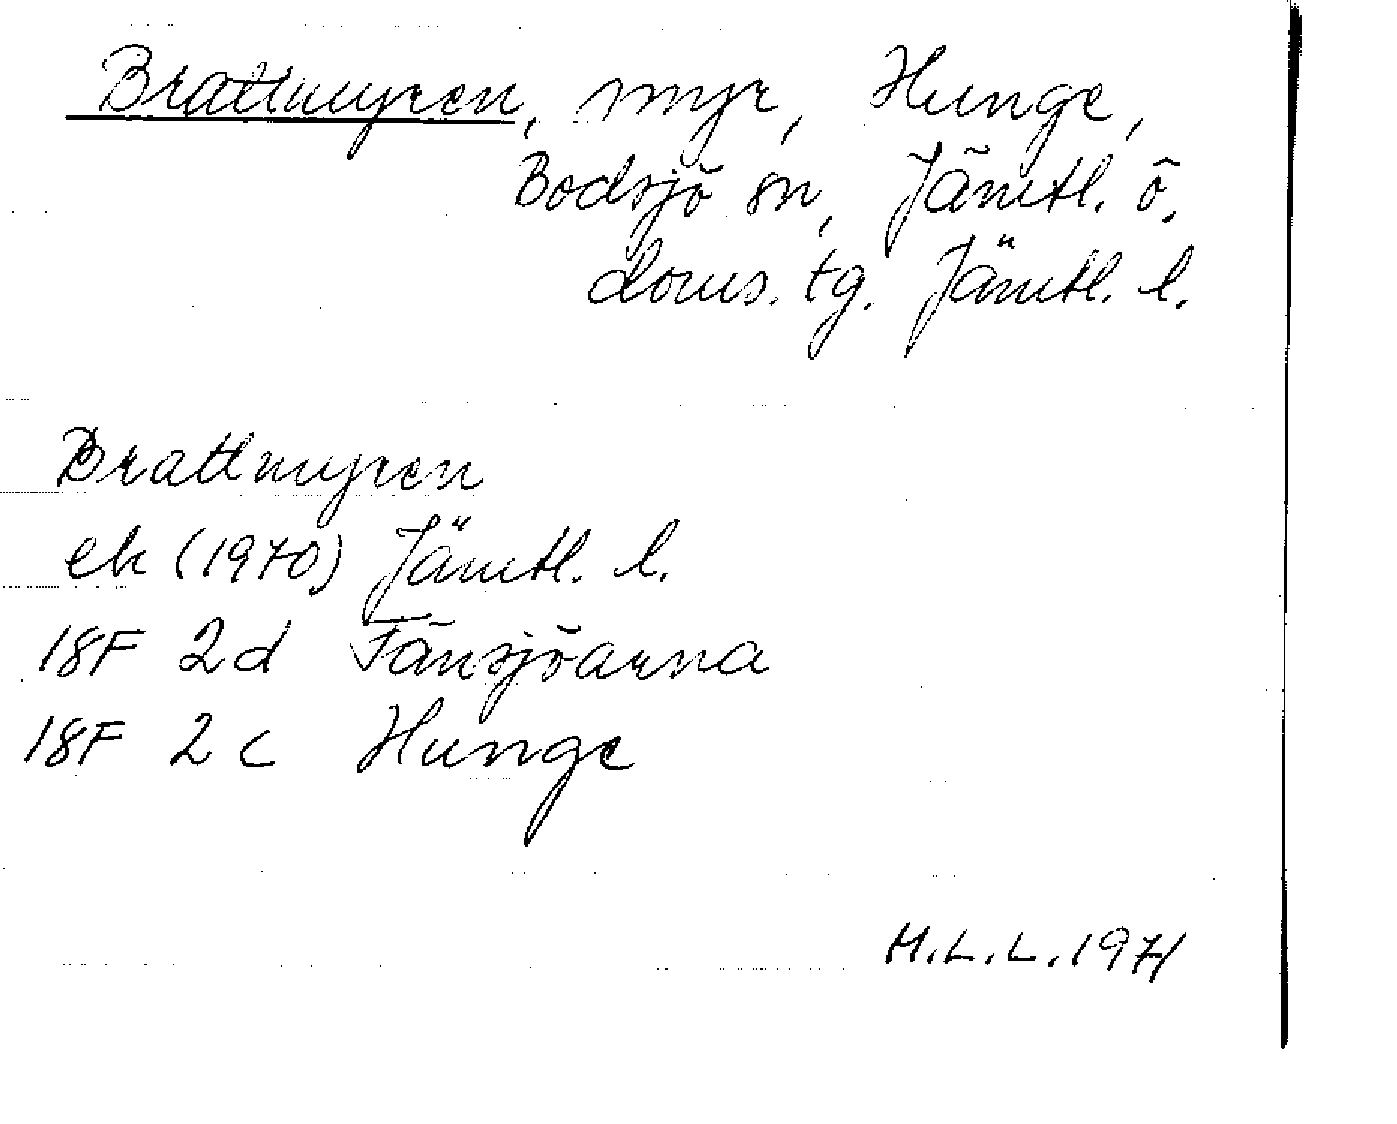 Brattmyren, myr, Hunge,
Bodsjö sn, Jämtl. ö.
doms. tg. Jämtl. l.
Brattmyren
ek (1970) Jämtl. l.
18F 2d Fänsjöarna
18F 2c Hunge
M.L.L. 1971